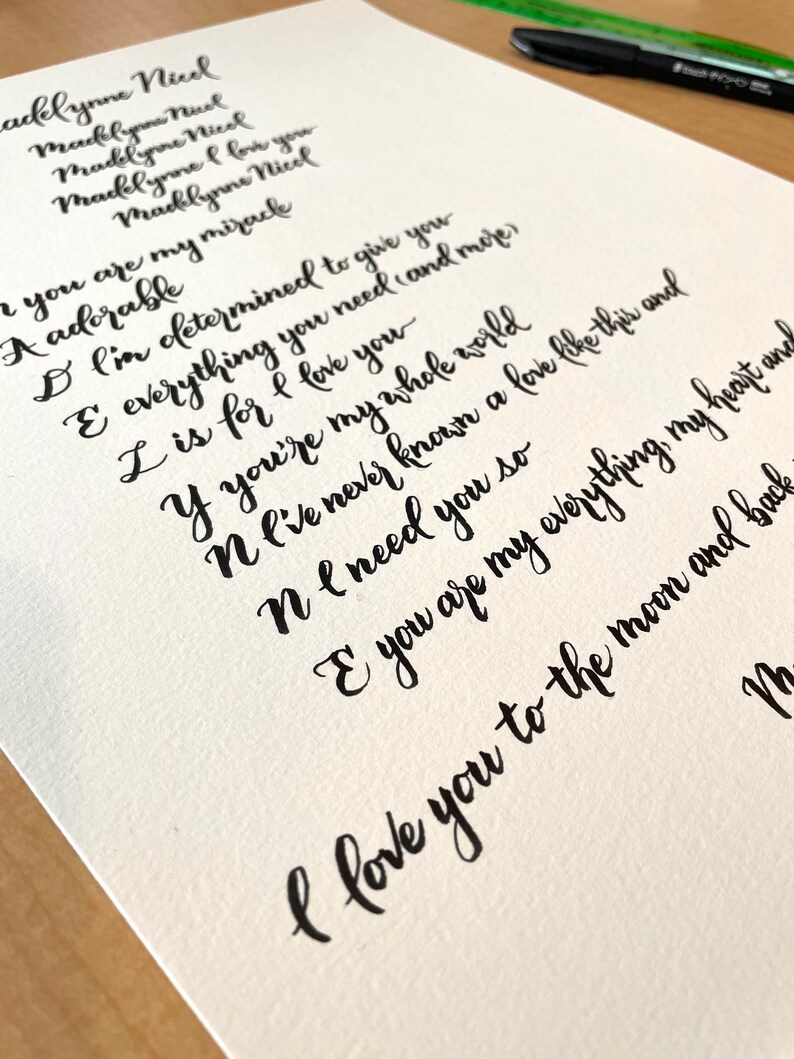 Madelynne Nicol
Madelynne Nicol
Madelynne Nicol
Madelynne I love you
Madelynne Nicol
you are my miracle
A adorable
D I'm determined to give you
E everything you need (and more)
L is for I love you
Y you're my whole world
N I've never known a love like this and
N I need you so
E you are my everything, my heart and
I love you to the moon and back
touch サインペン